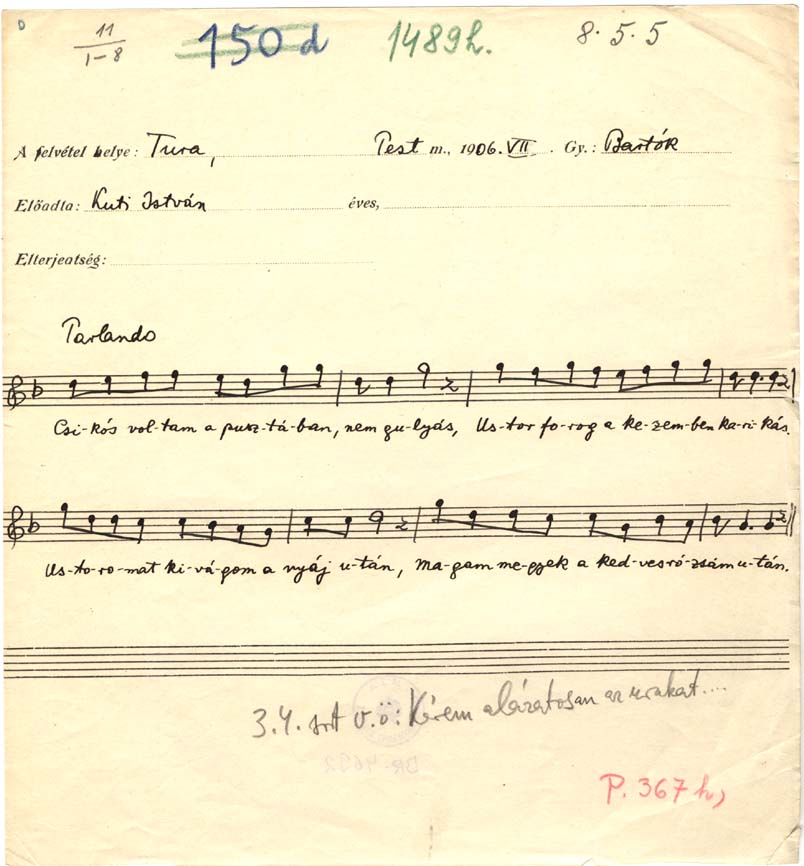 D
11
1-8
150 d
1489h.
8. 5. 5
A felvétel helye: Tura, Pest m., 1906. VII. Gy.: Bartók
Előadta: Kuti István éves,
Elterjedtség:
Parlando
Csi-kós vol-tam a pusz-tá-ban, nem gu-lyás, Us-tor fo-rog a ke-zem-ben ka-ri-kás.
Us-to-ro-mat ki-vá-gom a nyáj u-tán, Ma-gam me-gyek a ked-ves ró-zsám u-tán.
3.4. sort v.ö: Kérem alázatosan az urakat....
BR-4632
P. 367 h,